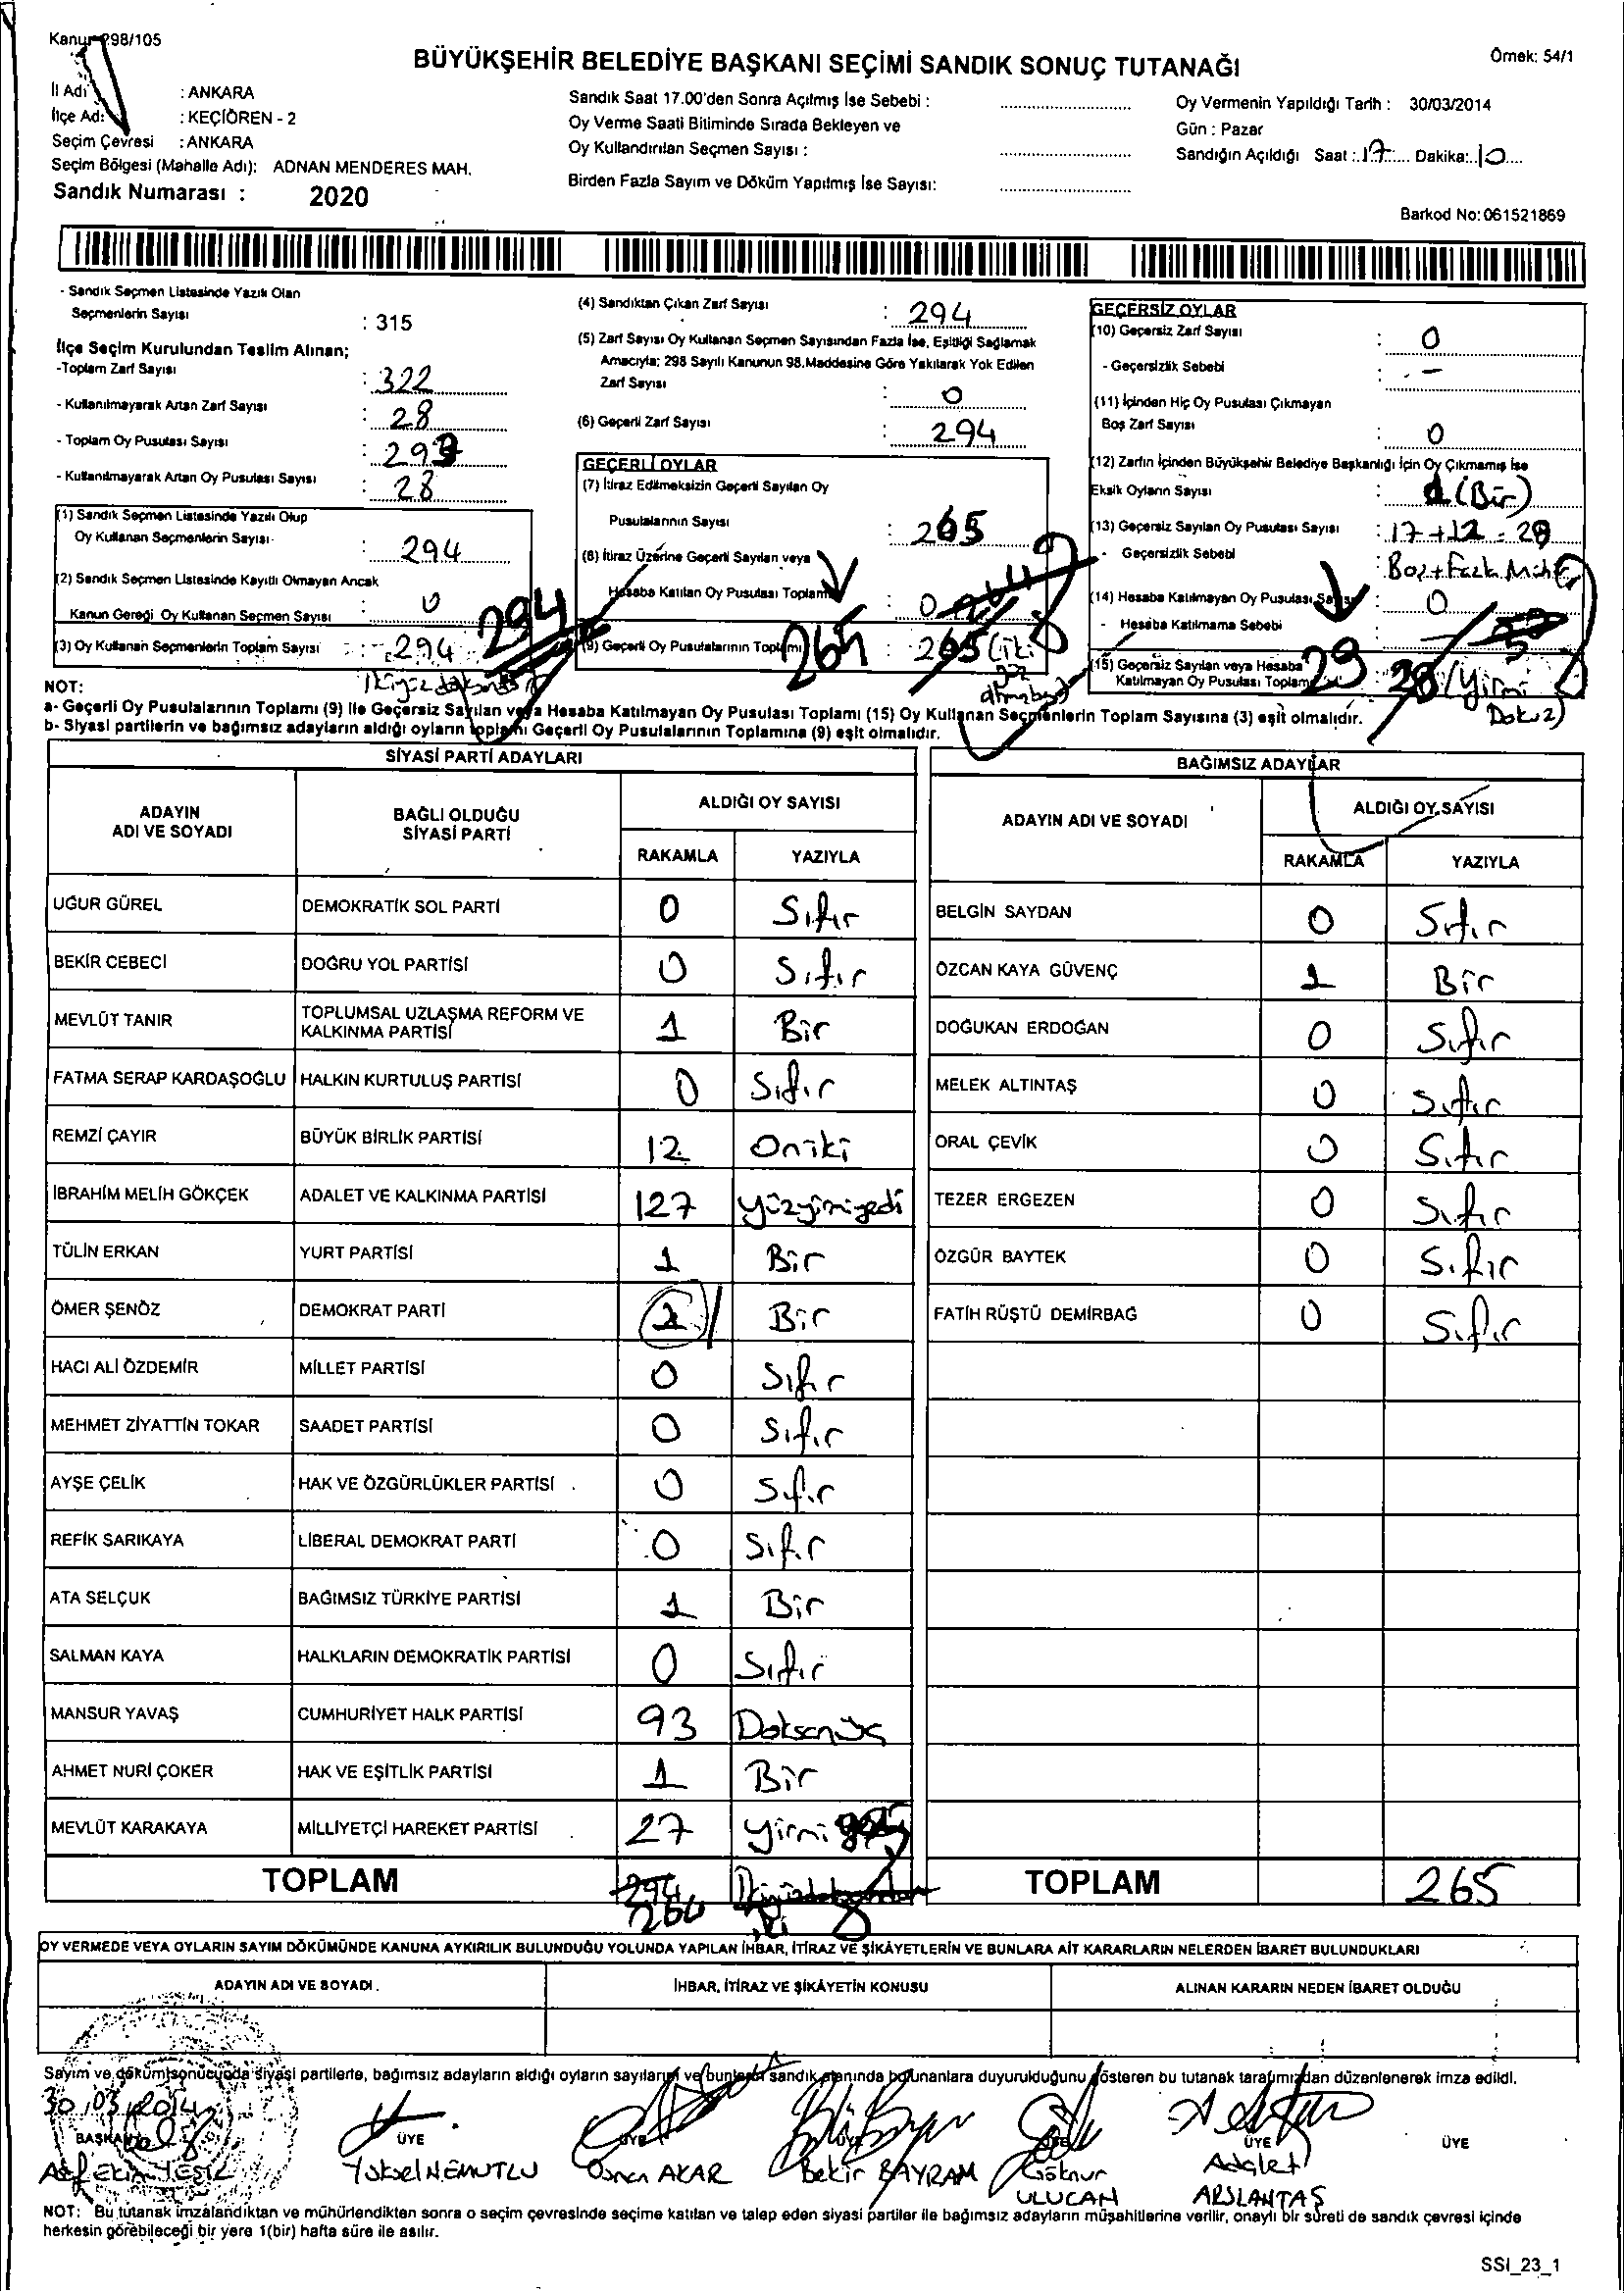 Kanun 298/105
BÜYÜKŞEHİR BELEDİYE BAŞKANI SEÇİMİ SANDIK SONUÇ TUTANAĞI
Örnek: 54/1
İl Adı : ANKARA
İlçe Adı : KEÇİÖREN - 2
Seçim Çevresi : ANKARA
Seçim Bölgesi (Mahalle Adı): ADNAN MENDERES MAH.
Sandık Numarası : 2020
Sandık Saat 17.00'den Sonra Açılmış İse Sebebi :
Oy Verme Saati Bitiminde Sırada Bekleyen ve
Oy Kullandırılan Seçmen Sayısı :
Birden Fazla Sayım ve Döküm Yapılmış İse Sayısı:
Oy Vermenin Yapıldığı Tarih : 30/03/2014
Gün : Pazar
Sandığın Açıldığı Saat : 17 Dakika: 10
Barkod No: 061521869
- Sandık Seçmen Listesinde Yazılı Olan
Seçmenlerin Sayısı : 315
İlçe Seçim Kurulundan Teslim Alınan;
-Toplam Zarf Sayısı : 322
- Kullanılmayarak Artan Zarf Sayısı : 28
- Toplam Oy Pusulası Sayısı :
- Kullanılmayarak Artan Oy Pusulası Sayısı : 28
(1) Sandık Seçmen Listesinde Yazılı Olup
Oy Kullanan Seçmenlerin Sayısı : 294
(2) Sandık Seçmen Listesinde Kayıtlı Olmayan Ancak
Kanun Gereği Oy Kullanan Seçmen Sayısı : 0
(3) Oy Kullanan Seçmenlerin Toplam Sayısı : 294 294
(4) Sandıktan Çıkan Zarf Sayısı : 294
(5) Zarf Sayısı Oy Kullanan Seçmen Sayısından Fazla İse, Eşitliği Sağlamak
Amacıyla; 298 Sayılı Kanunun 98.Maddesine Göre Yakılarak Yok Edilen
Zarf Sayısı : 0
(6) Geçerli Zarf Sayısı : 294
GEÇERLİ OYLAR
(7) İtiraz Edilmeksizin Geçerli Sayılan Oy
Pusulalarının Sayısı : 265
(8) İtiraz Üzerine Geçerli Sayılan veya
Hesaba Katılan Oy Pusulası Toplamı : 0
(9) Geçerli Oy Pusulalarının Toplamı : 265 (iki
yüz
altmışbeş)
GEÇERSİZ OYLAR
(10) Geçersiz Zarf Sayısı : 0
- Geçersizlik Sebebi : -
(11) İçinden Hiç Oy Pusulası Çıkmayan
Boş Zarf Sayısı : 0
(12) Zarfın İçinden Büyükşehir Belediye Başkanlığı İçin Oy Çıkmamış İse
Eksik Oyların Sayısı : 1 (Bir)
(13) Geçersiz Sayılan Oy Pusulası Sayısı : 17+12=
- Geçersizlik Sebebi : Boş+Fazla Mühür
(14) Hesaba Katılmayan Oy Pusulası Sayısı : 0
- Hesaba Katılmama Sebebi
(15) Geçersiz Sayılan veya Hesaba
Katılmayan Oy Pusulası Toplamı : 29 (Yirmi
Dokuz)
NOT:
a- Geçerli Oy Pusulalarının Toplamı (9) ile Geçersiz Sayılan veya Hesaba Katılmayan Oy Pusulası Toplamı (15) Oy Kullanan Seçmenlerin Toplam Sayısına (3) eşit olmalıdır.
b- Siyasi partilerin ve bağımsız adayların aldığı oyların toplamı Geçerli Oy Pusulalarının Toplamına (9) eşit olmalıdır.
SİYASİ PARTİ ADAYLARI
ADAYIN ADI VE SOYADI BAĞLI OLDUĞU SİYASİ PARTİ ALDIĞI OY SAYISI
RAKAMLA YAZIYLA
UĞUR GÜREL DEMOKRATİK SOL PARTİ 0 Sıfır
BEKİR CEBECİ DOĞRU YOL PARTİSİ 0 Sıfır
MEVLÜT TANIR TOPLUMSAL UZLAŞMA REFORM VE KALKINMA PARTİSİ 1 Bir
FATMA SERAP KARDAŞOĞLU HALKIN KURTULUŞ PARTİSİ 0 Sıfır
REMZİ ÇAYIR BÜYÜK BİRLİK PARTİSİ 12 Oniki
İBRAHİM MELİH GÖKÇEK ADALET VE KALKINMA PARTİSİ 127 Yüzyirmiyedi
TÜLİN ERKAN YURT PARTİSİ 1 Bir
ÖMER ŞENÖZ DEMOKRAT PARTİ 1 Bir
HACI ALİ ÖZDEMİR MİLLET PARTİSİ 0 Sıfır
MEHMET ZİYATTİN TOKAR SAADET PARTİSİ 0 Sıfır
AYŞE ÇELİK HAK VE ÖZGÜRLÜKLER PARTİSİ 0 Sıfır
REFİK SARIKAYA LİBERAL DEMOKRAT PARTİ 0 Sıfır
ATA SELÇUK BAĞIMSIZ TÜRKİYE PARTİSİ 1 Bir
SALMAN KAYA HALKLARIN DEMOKRATİK PARTİSİ 0 Sıfır
MANSUR YAVAŞ CUMHURİYET HALK PARTİSİ 93 Doksanüç
AHMET NURİ ÇOKER HAK VE EŞİTLİK PARTİSİ 1 Bir
MEVLÜT KARAKAYA MİLLİYETÇİ HAREKET PARTİSİ 27 Yirmi
TOPLAM 294 264
BAĞIMSIZ ADAYLAR
ADAYIN ADI VE SOYADI ALDIĞI OY SAYISI
RAKAMLA YAZIYLA
BELGİN SAYDAN 0 Sıfır
ÖZCAN KAYA GÜVENÇ 1 Bir
DOĞUKAN ERDOĞAN 0 Sıfır
MELEK ALTINTAŞ 0 Sıfır
ORAL ÇEVİK 0 Sıfır
TEZER ERGEZEN 0 Sıfır
ÖZGÜR BAYTEK 0 Sıfır
FATİH RÜŞTÜ DEMİRBAĞ 0 Sıfır
TOPLAM 265
OY VERMEDE VEYA OYLARIN SAYIM DÖKÜMÜNDE KANUNA AYKIRILIK BULUNDUĞU YOLUNDA YAPILAN İHBAR, İTİRAZ VE ŞİKÂYETLERİN VE BUNLARA AİT KARARLARIN NELERDEN İBARET BULUNDUKLARI
ADAYIN ADI VE SOYADI İHBAR, İTİRAZ VE ŞİKÂYETİN KONUSU ALINAN KARARIN NEDEN İBARET OLDUĞU
Sayım ve döküm sonucunda siyasi partilerle, bağımsız adayların aldığı oyların sayılarını ve bunların sandık alanında bulunanlara duyurulduğunu gösteren bu tutanak tarafımızdan düzenlenerek imza edildi.
30.03.2014
BAŞKAN ÜYE ÜYE ÜYE ÜYE ÜYE ÜYE
Yüksel NEMUTLU Osman AKAR Bekir BAYRAM Göknur ULUCAN Adalet ARSLANTAŞ
NOT: Bu tutanak imzalandıktan ve mühürlendikten sonra o seçim çevresinde seçime katılan ve talep eden siyasi partiler ile bağımsız adayların müşahitlerine verilir, onaylı bir sureti de sandık çevresi içinde
herkesin görebileceği bir yere 1(bir) hafta süre ile asılır.
SSI_23_1